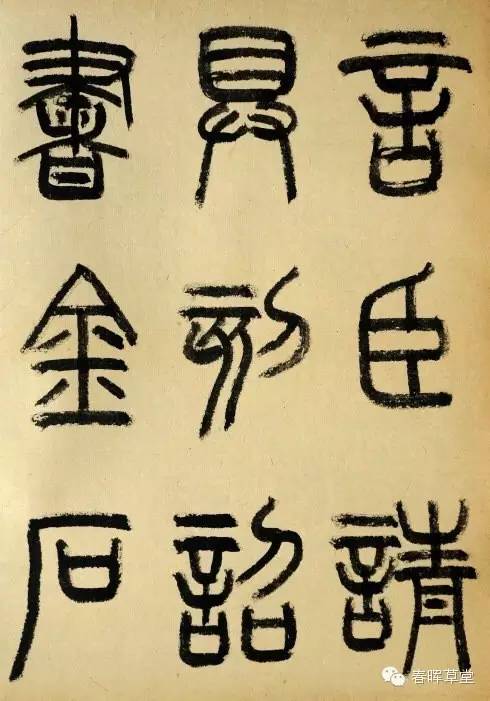 言臣請
具刻詔
書金石
春晖草堂